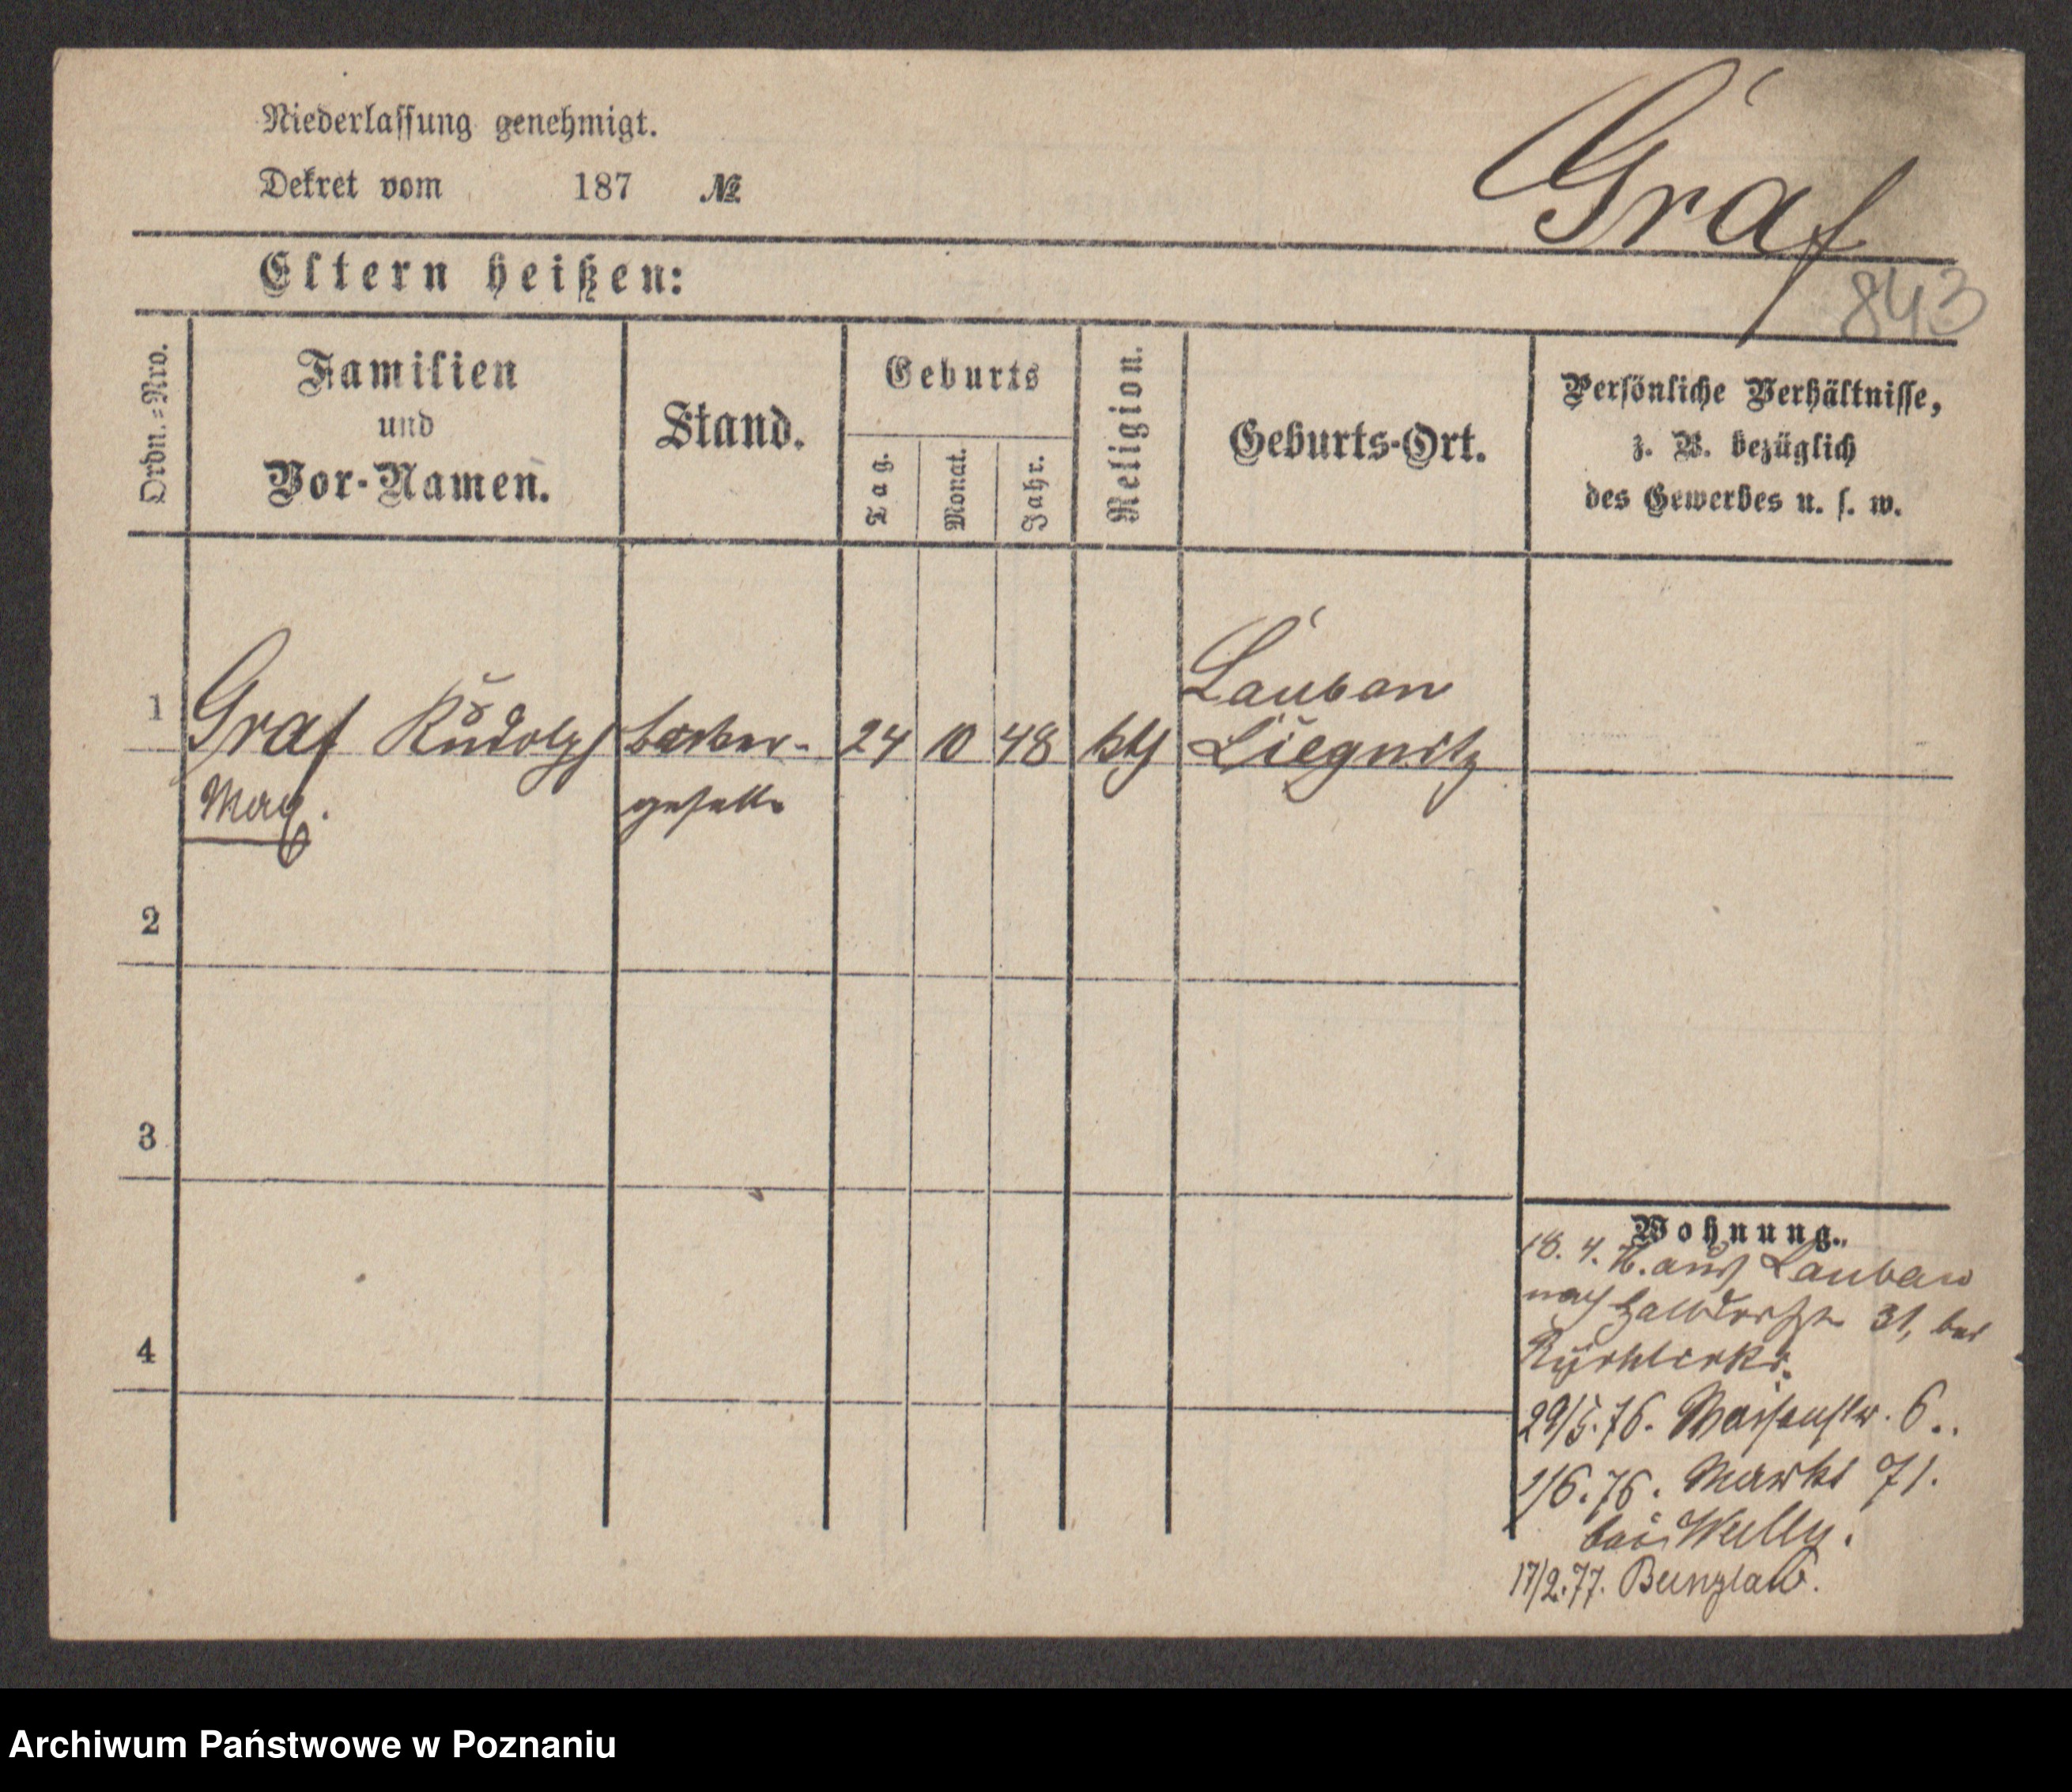 Niederlassung genehmigt.
Dekret vom 187 №
Graf
Eltern heißen:
843
Ordn.-Nro.
Familien
und
Vor-Namen.
Stand.
Geburts
Tag.
Monat.
Jahr.
Religion.
Geburts-Ort.
Persönliche Verhältnisse,
z. B. bezüglich
des Gewerbes u. s. w.
Lauban
1 Graf Rudolph Barbier- 24 10 48 kth Liegnitz
gehilfe
2
3
4
Wohnung.
18. 4. 76. aus Lauban
nach Halbdorfstr 31, bei
29/5. 76. Waisenstr. 6.
1/6. 76. Markt 71.
bei
17/2. 77. Bunzlau.
Archiwum Państwowe w Poznaniu